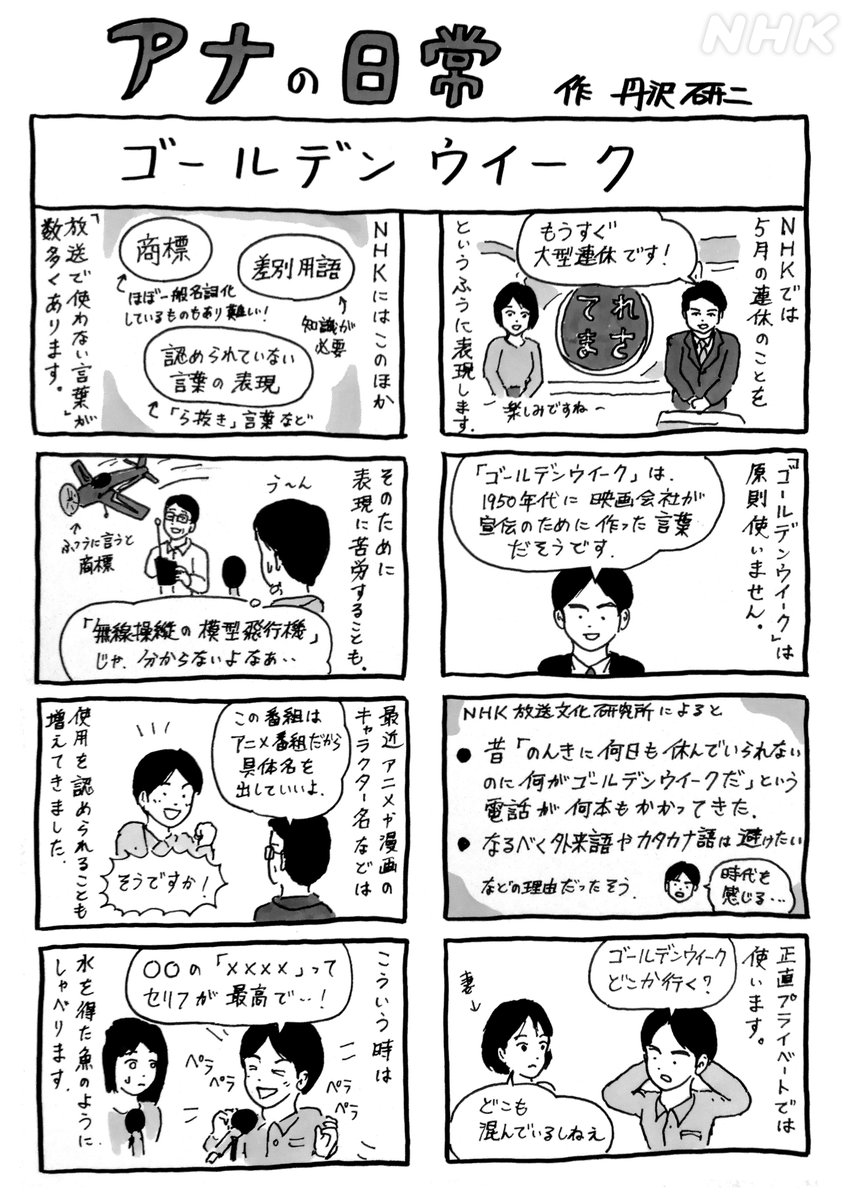 NHK
アナの日常
作 丹沢研二
ゴールデンウイーク
NHKでは
5月の連休のことを
もうすぐ
大型連休です！
れさ
てま
楽しみですね〜
というふうに表現します。
「ゴールデンウイーク」は
原則使いません。
「ゴールデンウイーク」は、
1950年代に映画会社が
宣伝のために作った言葉
だそうです．
NHK放送文化研究所によると
●昔「のんきに何日も休んでいられない
のに何がゴールデンウイークだ」という
電話が何本もかかってきた．
●なるべく外来語やカタカナ語は避けたい
などの理由だったそう．
時代を
感じる…
正直プライベートでは
使います。
ゴールデンウイーク
どこか行く？
妻
どこも
混んでいるしねえ
NHKにはこのほか
商標
ほぼ一般名詞化
しているものもあり難しい！
差別用語
知識が
必要
認められていない
言葉の表現
「ら抜き」言葉など
「放送で使わない言葉」が
数多くあります。
そのために
表現に苦労することも。
う〜ん
ふつうに言うと
商標
「無線操縦の模型飛行機」
じゃ、分からないよなぁ‥
最近アニメや漫画の
キャラクター名などは
この番組は
アニメ番組だから
具体名を
出していいよ．
そうですか！
使用を認められることも
増えてきました．
こういう時は
○○の「××××」って
セリフが最高で‥！
ペラ
ペラ
ペラ
ペラ
水を得た魚のように
しゃべります．